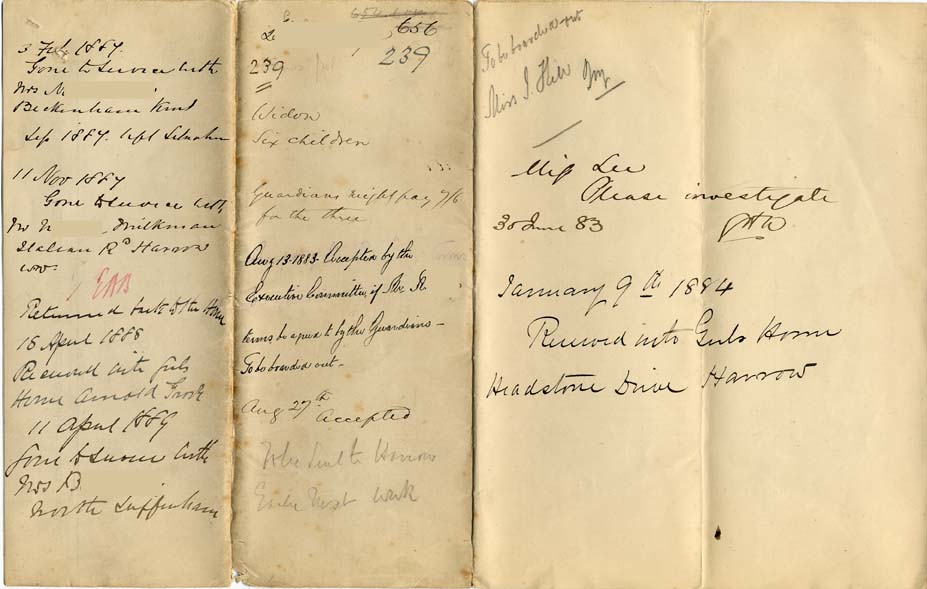 3 Feb 1887.
Gone to Service with
Mrs M
Beckenham Kent
Sep 1887. left Situation
11 Nov 1887
Gone to Service with
Mr N , Milkman
Rd Harrow
Returned back to the Home
16 April 1888
Received into Girls
Home Arnold
11 April 1889
Gone to Service with
Mrs B
North Luffenham
656
239
239
Widow
Six children
Guardians might pay 7/6
for the three
Aug 13. 1883. Accepted by the
Executive Committee, if Mr R.
terms be agreed to by the Guardians —
To be boarded out —
Aug 27th Accepted
To be sent to Harrow
Early next week
To be boarded out
Miss J. Hill
Miss Lee
Please investigate
30 June 83
January 9th 1884
Received into Girls Home
Headstone Drive Harrow